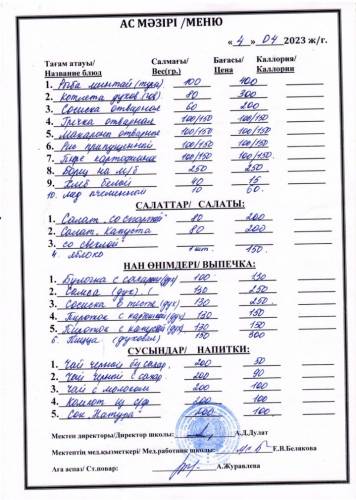 АС МӘЗІРІ /МЕНЮ
« 4 » 04 2023 ж/г.
Тағам атауы/ Салмағы/ Бағасы/ Каллория/
Название блюд Вес(гр.) Цена Каллории
1. минтай 100 400
2. Котлета 80 300
3. Сосиска отварная 60 200
4. Гречка отварная 100/150 100/150
5. Макароны отварные 100/150 100/150
6. Рис припущенный 100/150 100/150
7. Пюре картофельное 100/150 100/150
8. Борщ на м/б 250 250
9. Хлеб белый 40 15
10. 10 60
САЛАТТАР/ САЛАТЫ:
1. Салат 80 200
2. Салат. Капуста 80 200
3. со свеклой
4. яблоко 1 шт. 150
НАН ӨНІМДЕРІ/ ВЫПЕЧКА:
1. Булочка с 100 130
2. (дух) 130 250
3. Сосиска в тесте (дух) 130 250
4. Пирожок с 130 150
5. Пирожок с капустой (дух) 130 150
6. Пицца (духовая) 150 300
СУСЫНДАР/ НАПИТКИ:
1. Чай черный б/ сахар. 200 50
2. Чай черный с сахар. 200 90
3. Чай с молоком 200 100
4. Компот из с/ф 200 100
5. Сок 200 100
Мектеп директоры/Директор школы: А.Д.Дулат
Мектептің мед.қызметкері/ Мед.работник школы: Е.В.Белякова
Аға аспаз/ Ст.повар: А.Журавлева